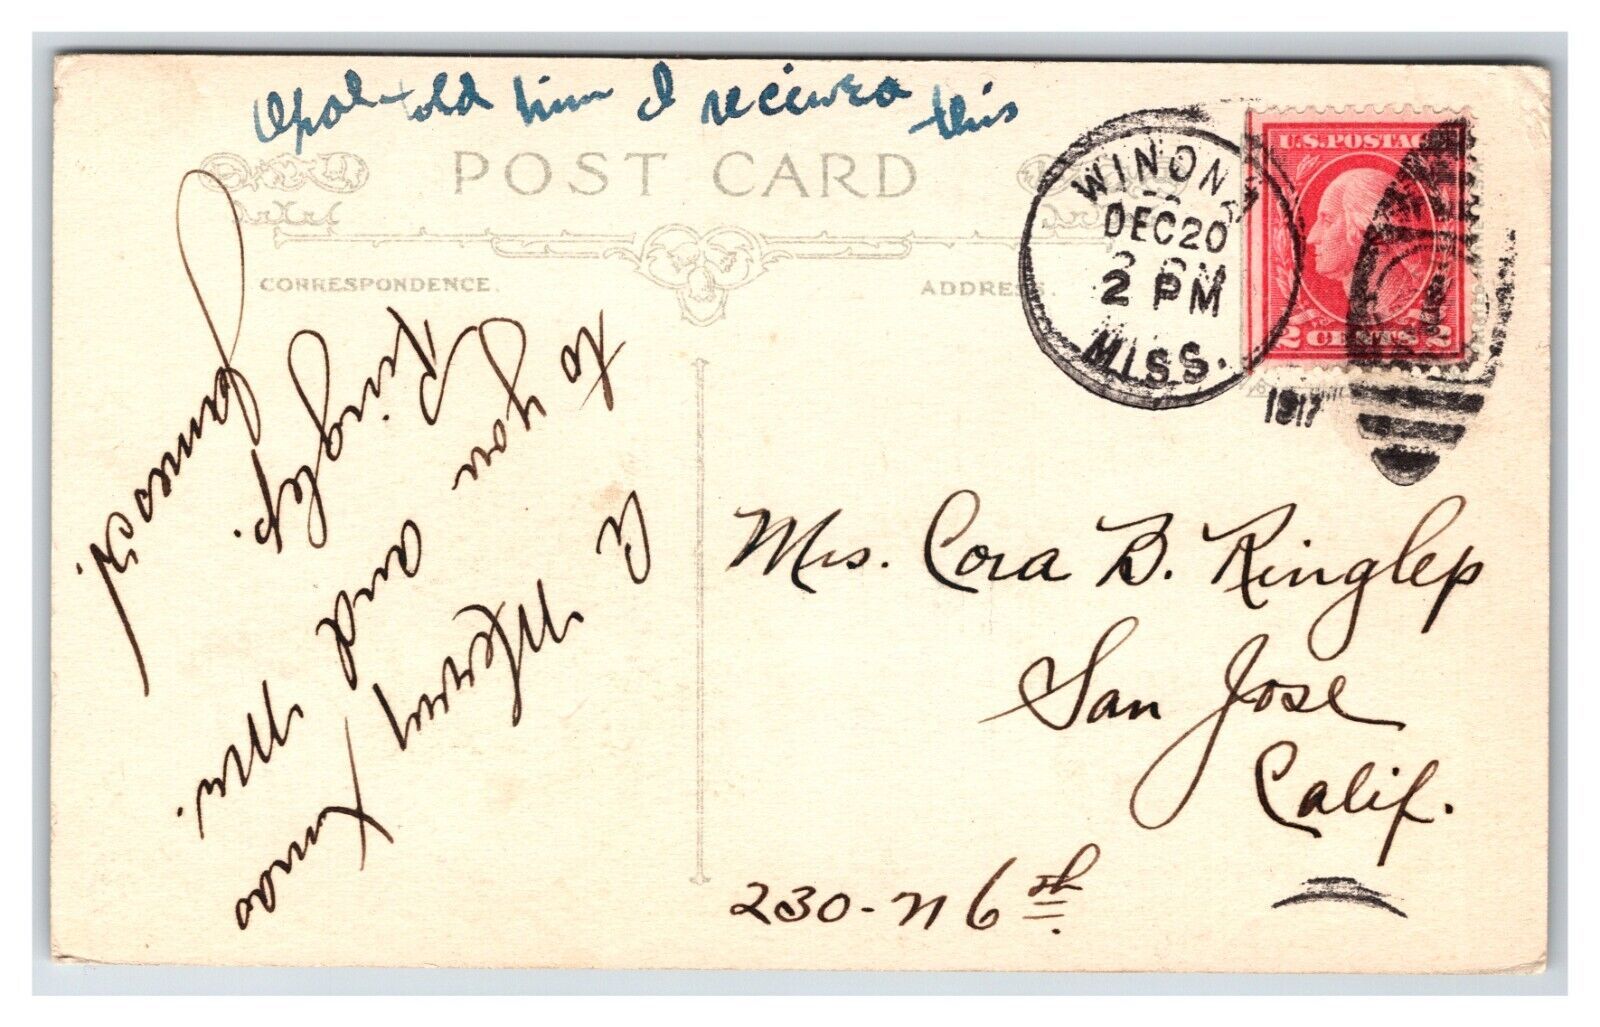 Opal told him I received this
POST CARD
CORRESPONDENCE.
ADDRESS.
WINONA
DEC 20
2 PM
MISS.
1917
U.S. POSTAGE
2 CENTS 2
A Merry
Xmas
to you
and Mr.
Ringlep.
Mrs. Cora B. Ringlep
San Jose
Calif.
230 - N 6th.